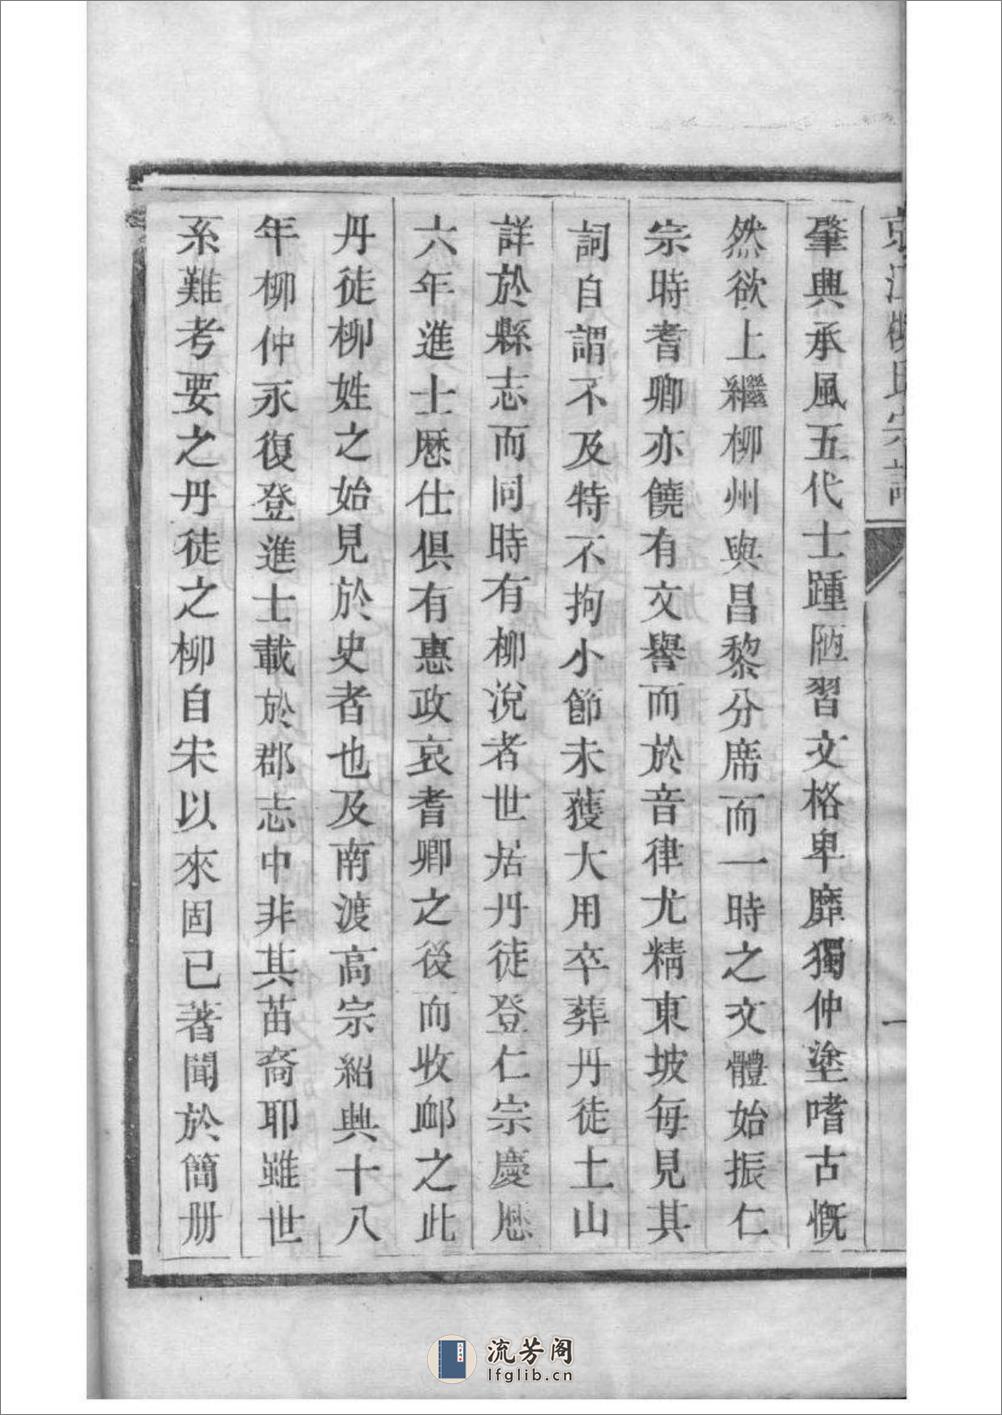 京江柳氏宗譜
一
肇興承風五代士踵陋習文格卑靡獨仲塗嗜古慨
然欲上繼柳州與昌黎分席而一時之文體始振仁
宗時耆卿亦饒有文譽而於音律尤精東坡每見其
詞自謂不及特不拘小節未獲大用卒葬丹徒土山
詳於縣志而同時有柳涗者世居丹徒登仁宗慶歷
六年進士歷仕俱有惠政哀耆卿之後而收卹之此
丹徒柳姓之始見於史者也及南渡高宗紹興十八
年柳仲永復登進士載於郡志中非其苗裔耶雖世
系難考要之丹徒之柳自宋以來固已著聞於簡册
流芳阁
lfglib.cn